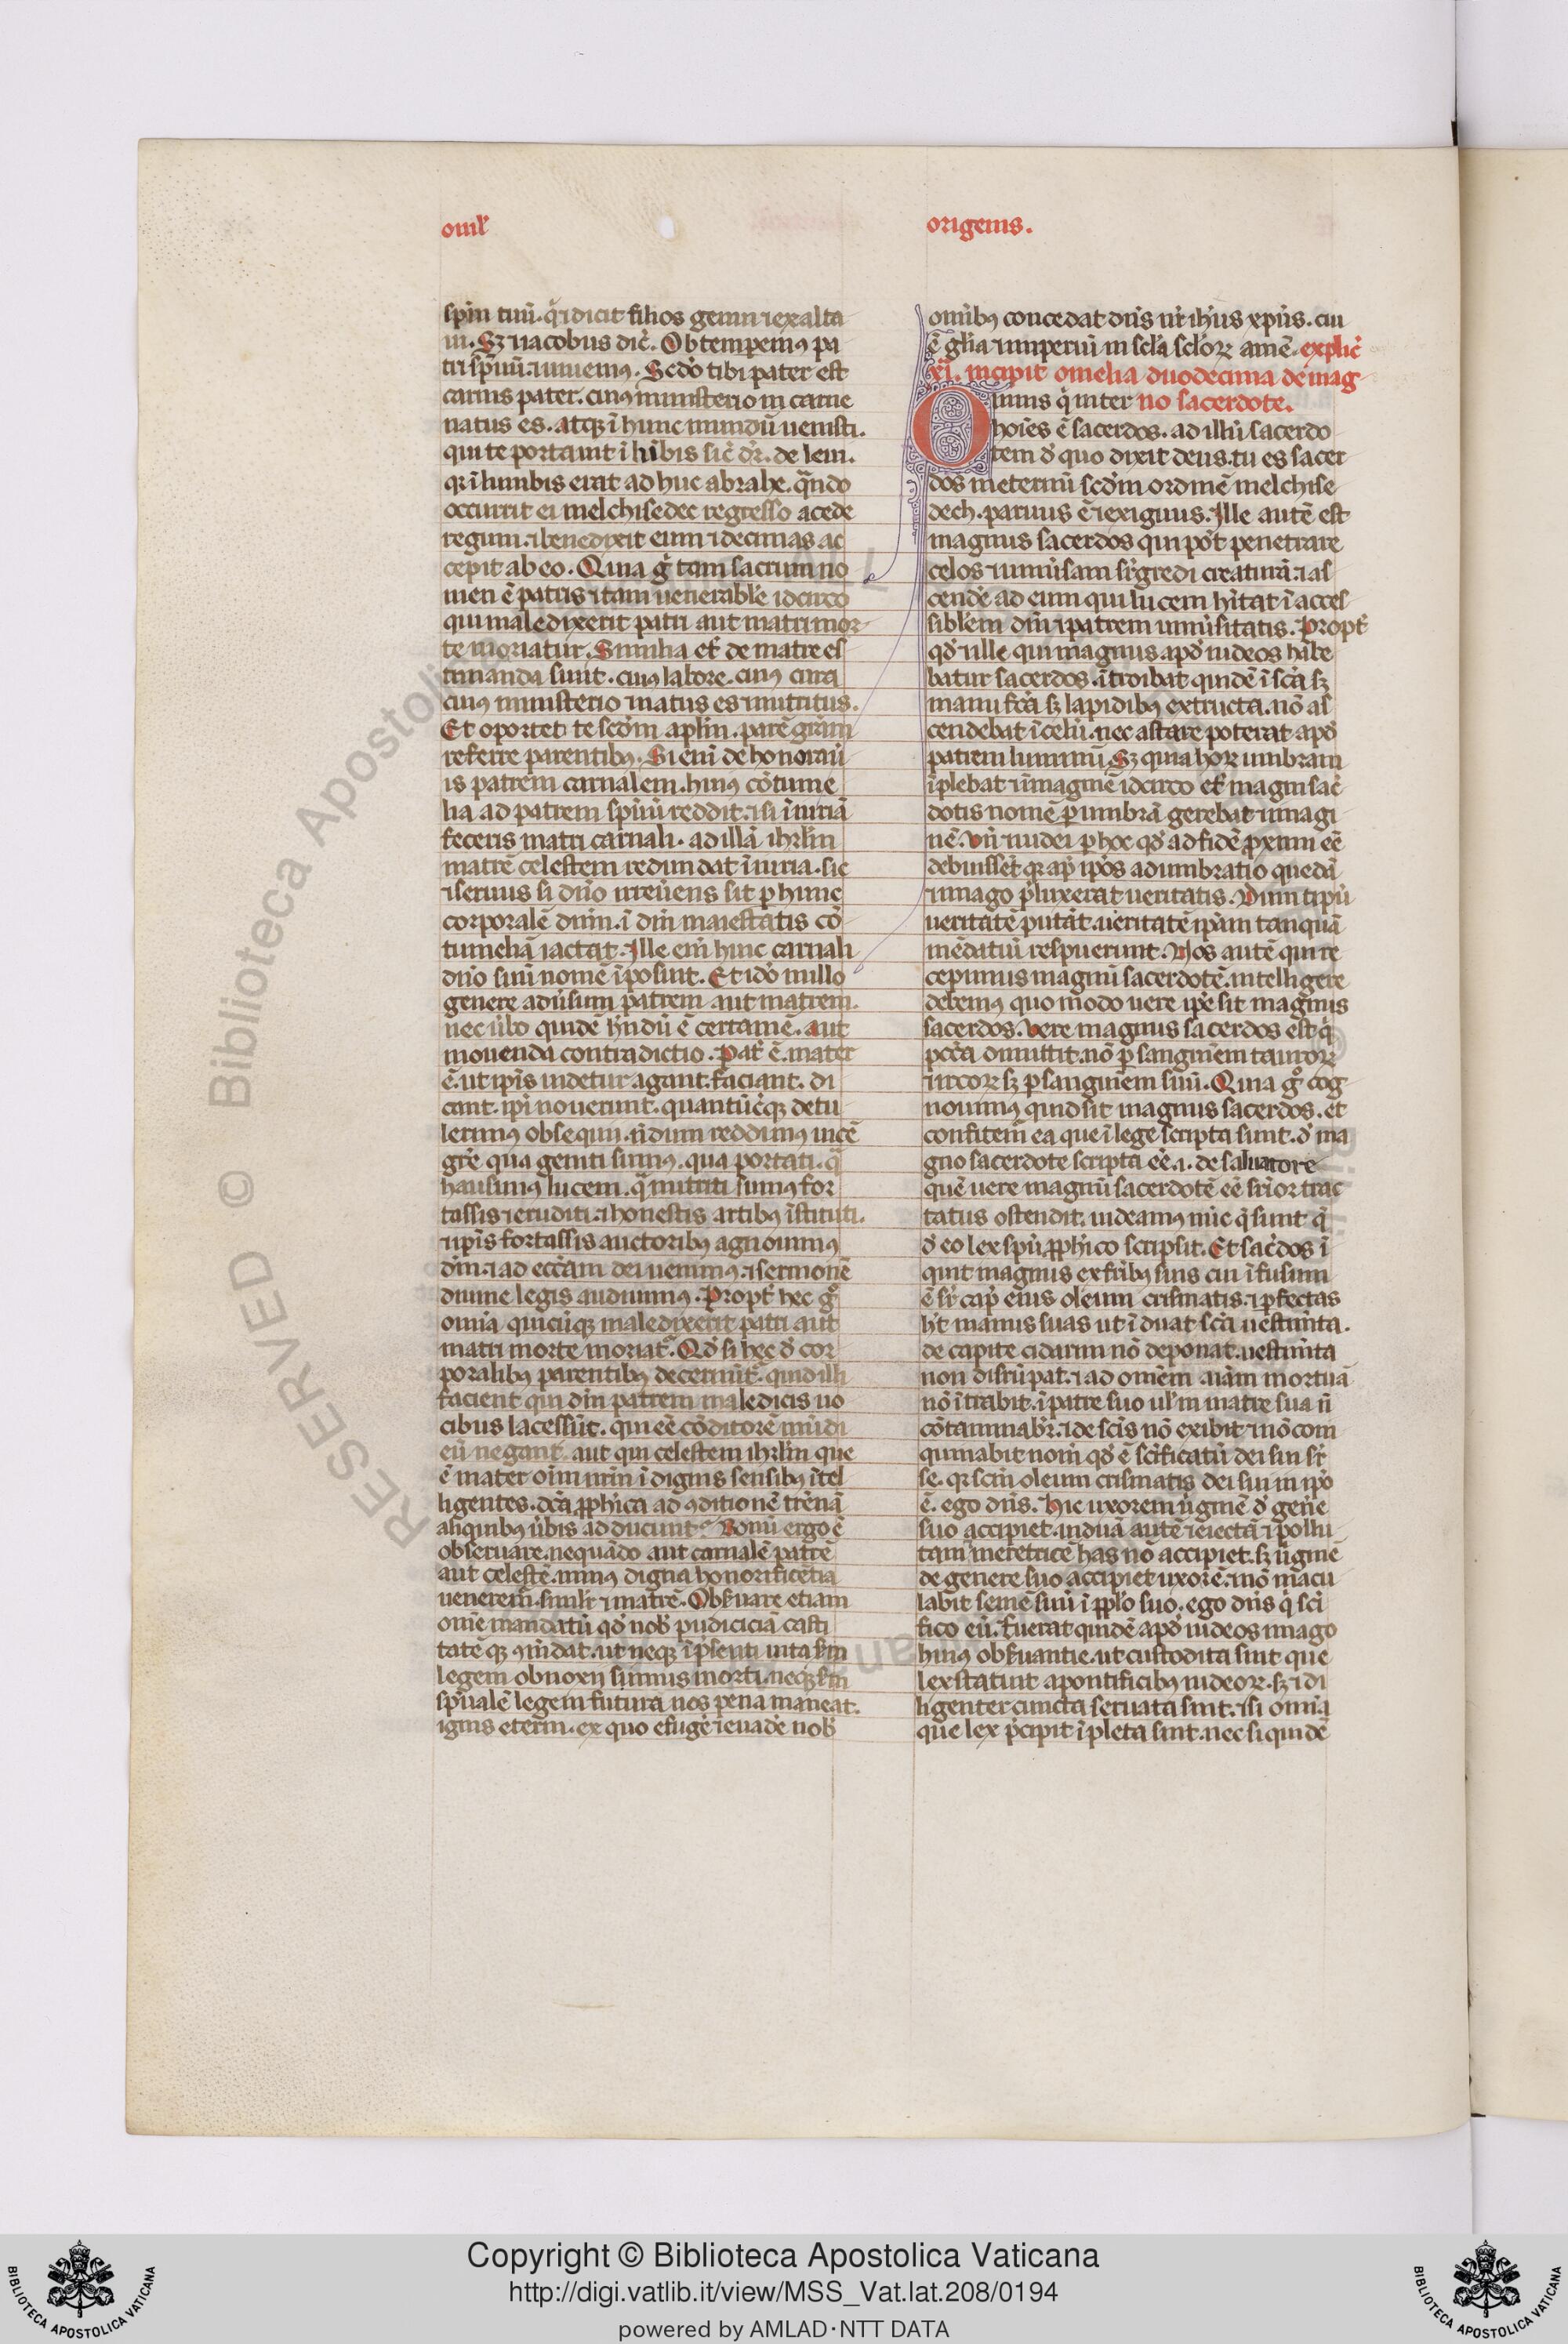 omĩ
origenis.
spm tuũ. q̃ dicit filios genui ⁊ exalta
ui. Sʒ ⁊ iacobus dic̃. Obtemꝑemꝰ pa
tri spũũ. ⁊ uiuemꝰ. Scd̃o tibi pater est
carnis pater. cuiꝰ ministerio in carne
natus es. atqʒ ĩ hunc mundũ uenisti.
qui te portauit ĩ lũbis sic̃ dr̃. de leui.
qꝛ ĩ lumbis erat ad huc abrahe. qñdo
occurrit ei melchisedec regresso a cede
regum. ⁊ benedixit eum ⁊ decimas ac
cepit ab eo. Quia g̊ tam sacrum no
men ẽ patris ⁊ tam uenerabile idcirco
qui maledixerit patri aut matri mor
te moriatur. Similia et̃ de matre es
timanda sunt. cuiꝰ labore. cuiꝰ cura
cuiꝰ ministerio ⁊ natus es ⁊ nutritus.
Et oportet te scd̃m aplm̃. parẽ gr̃am
referre parentibꝰ. Si eni dehonoraũ
is patrem carnalem. huiꝰ cõtume
lia ad patrem spũũ reddit. ⁊ si ĩiuriã
feceris matri carnali. ad illã ihrlm̃
matrẽ celestem redundat ĩiuria. sic
⁊ seruus si dño irreũens sit ꝑ hunc
corporalẽ dnm̃. ĩ dm̃ maiestatis cõ
tumeliã iactat. Ille em̃ huic carnali
dño suũ nomẽ ĩposuit. Et idõ nullo
genere adũsum patrem aut matrem.
nec ũbo quidẽ hñdũ ẽ certamẽ. aut
mouenda contradictio. Pat̃ ẽ. mater
ẽ. ut ip̃is uidetur agant. faciant. di
cant. ip̃i nouerunt. quantũcũqʒ detu
lerimꝰ obsequii. ñdum reddimꝰ uicẽ
gr̃e qua geniti sumꝰ. qua portati. q̃
hausimus lucem. q̃ nutriti sumꝰ for
tassis ⁊ eruditi. ⁊ honestis artibꝰ ĩstituti.
⁊ ip̃is fortassis auctoribꝰ agnouimꝰ
dm̃. ⁊ ad eccãm dei uenimꝰ. ⁊ sermonẽ
diuine legis audiuimꝰ. Propt̃ hec g̊
omnia quicũqʒ maledixerit patri aut
matri morte moriat̃. Qd̃ si hec d̃ cor
poralibꝰ parentibꝰ decernũt̃. quid illi
facient qui dm̃ patrem maledicis uo
cibus lacessũt. qui eẽ cõditorẽ mũdi
eũ negant. aut qui celestem ihrlm̃ que
ẽ mater oĩm nr̃m ĩdignis sensibꝰ ĩtel
ligentes. dc̃a ꝓph̃ica ad ꝯditionẽ tr̃enã
aliquibꝰ ũbis adducunt. Bonũ ergo ẽ
obseruare. nequãdo aut carnalẽ patrẽ
aut celestẽ. minꝰ digna honorificẽtia
uenerem̃. simil̃r ⁊ matrẽ. Obs̃uare etiam
omẽ mandatũ qd̃ nob̃ pudiciciã casti
tatẽ qʒ ꝯm̃dat. ut neqʒ ĩ p̃senti uita s̃m
legem obnoxij simus morti. neqʒ s̃m
sp̃ualẽ legem futura nos pena maneat.
ignis eterni. ex quo efugẽ ⁊ euadẽ nob̃
omĩbꝰ concedat dñs nr̃ ihũs xp̃us. cui
ẽ gl̃ia ⁊ imperiũ in scl̃a scl̃oꝝ amẽ. explic̃
xi. incipit omelia duodecima de mag-
Omnis q̃ inter no sacerdote.
hoĩes ẽ sacerdos. ad illũ sacerdo
tem d̃ quo dixit deus. tu es sacer
dos in eternũ scd̃m ordinẽ melchise
dech. paruus ẽ ⁊ exiguus. Ille autẽ est
magnus sacerdos qui pot̃ penetrare
celos ⁊ uniũsam sr̃gredi creaturã. ⁊ as
cendẽ ad eum qui lucem hĩtat ĩ acces
sibl̃em dm̃ ⁊ patrem uniũsitatis. Propt̃
qd̃ ⁊ ille qui magnus apd̃ iudeos habe
batur sacerdos. ĩtroibat quidẽ ĩ scã sʒ
manu fcã sʒ lapidibꝰ extructa. nõ as
cendebat ĩ celũ. nec astare poterat apd̃
patrem luminũ. Sʒ quia hoꝝ umbram
ĩplebat ⁊ ĩmaginẽ idcirco et̃ magni sac̃
dotis nomẽ ꝑ umbrã gerebat ⁊ imagi
nẽ. Vñ ⁊ iudei ꝑ hoc qd̃ ad fidẽ ꝓximi eẽ
debuisset̃ qꝛ ap̃ ip̃os adumbratio quedã
⁊ imago p̃luxerat ueritatis. Dum tipũ
ueritatẽ putãt. ueritatẽ ip̃am tanquã
mẽdatiũ respuerunt. Nos autẽ qui re
cepimus magnũ sacerdotẽ. intelligere
debemꝰ quo modo uere ip̃e sit magnus
sacerdos. Vere magnus sacerdos est q̃
pcc̃a dimittit. nõ ꝑ sanguĩem tauroꝝ
⁊ ircoꝝ sʒ ꝑ sanguĩem suũ. Quia g̊ cog
nouimꝰ quid sit magnus sacerdos. et
confitem̃ ea que ĩ lege scripta sunt. d̃ ma
gno sacerdote scripta eẽ .i. de saluatore
quẽ uere magnũ sacerdotẽ eẽ sr̃ior trac
tatus ostendit. uideamꝰ nũc q̃ sunt q̃
d̃ eo lex spũ ꝓph̃ico scripsit. Et sac̃dos ĩ
quit magnus ex fr̃ibꝰ suis cui ĩfusum
ẽ sr̃ cap̃ eius oleum crismatis. ⁊ ꝑfectas
h̃t manus suas ut ĩduat scã uestim̃ta.
de capite cidarim nõ deponat. uestim̃ta
non disrũpat. ⁊ ad omẽm aĩam mortuã
nõ ĩtrabit. ĩ patre suo ul̃ in matre sua ñ
cõtaminabr̃. ⁊ de sc̃is nõ exibit ⁊ nõ com
quinabit nom̃ qd̃ ẽ scĩficatũ dei sui sr̃
se. qꝛ scm̃ oleum crismatis dei sui in ip̃o
ẽ. ego dñs. Hic uxorem ũginẽ d̃ geñe
suo accipiet. uiduã autẽ ⁊ eiectã ⁊ pollu
tam meretricẽ has nõ accipiet. sʒ ũginẽ
de genere suo accipiet uxorẽ. ⁊ nõ macu
labit semẽ suũ ĩ ppl̃o suo. ego dñs q̃ sci
fico eũ. Fuerat quidẽ apd̃ iudeos imago
huiꝰ obs̃uantie. ut custodita sint que
lex statuit a pontificibꝰ iudeoꝝ. sʒ ⁊ di
ligenter cuncta seruata sint. ⁊ si omnia
que lex p̃cipit ĩpleta sint. nec si quidẽ
RESERVED © Biblioteca Apostolica Vaticana
BIBLIOTECA APOSTOLICA VATICANA
Copyright © Biblioteca Apostolica Vaticana
http://digi.vatlib.it/view/MSS_Vat.lat.208/0194
powered by AMLAD·NTT DATA
BIBLIOTECA APOSTOLICA VATICANA